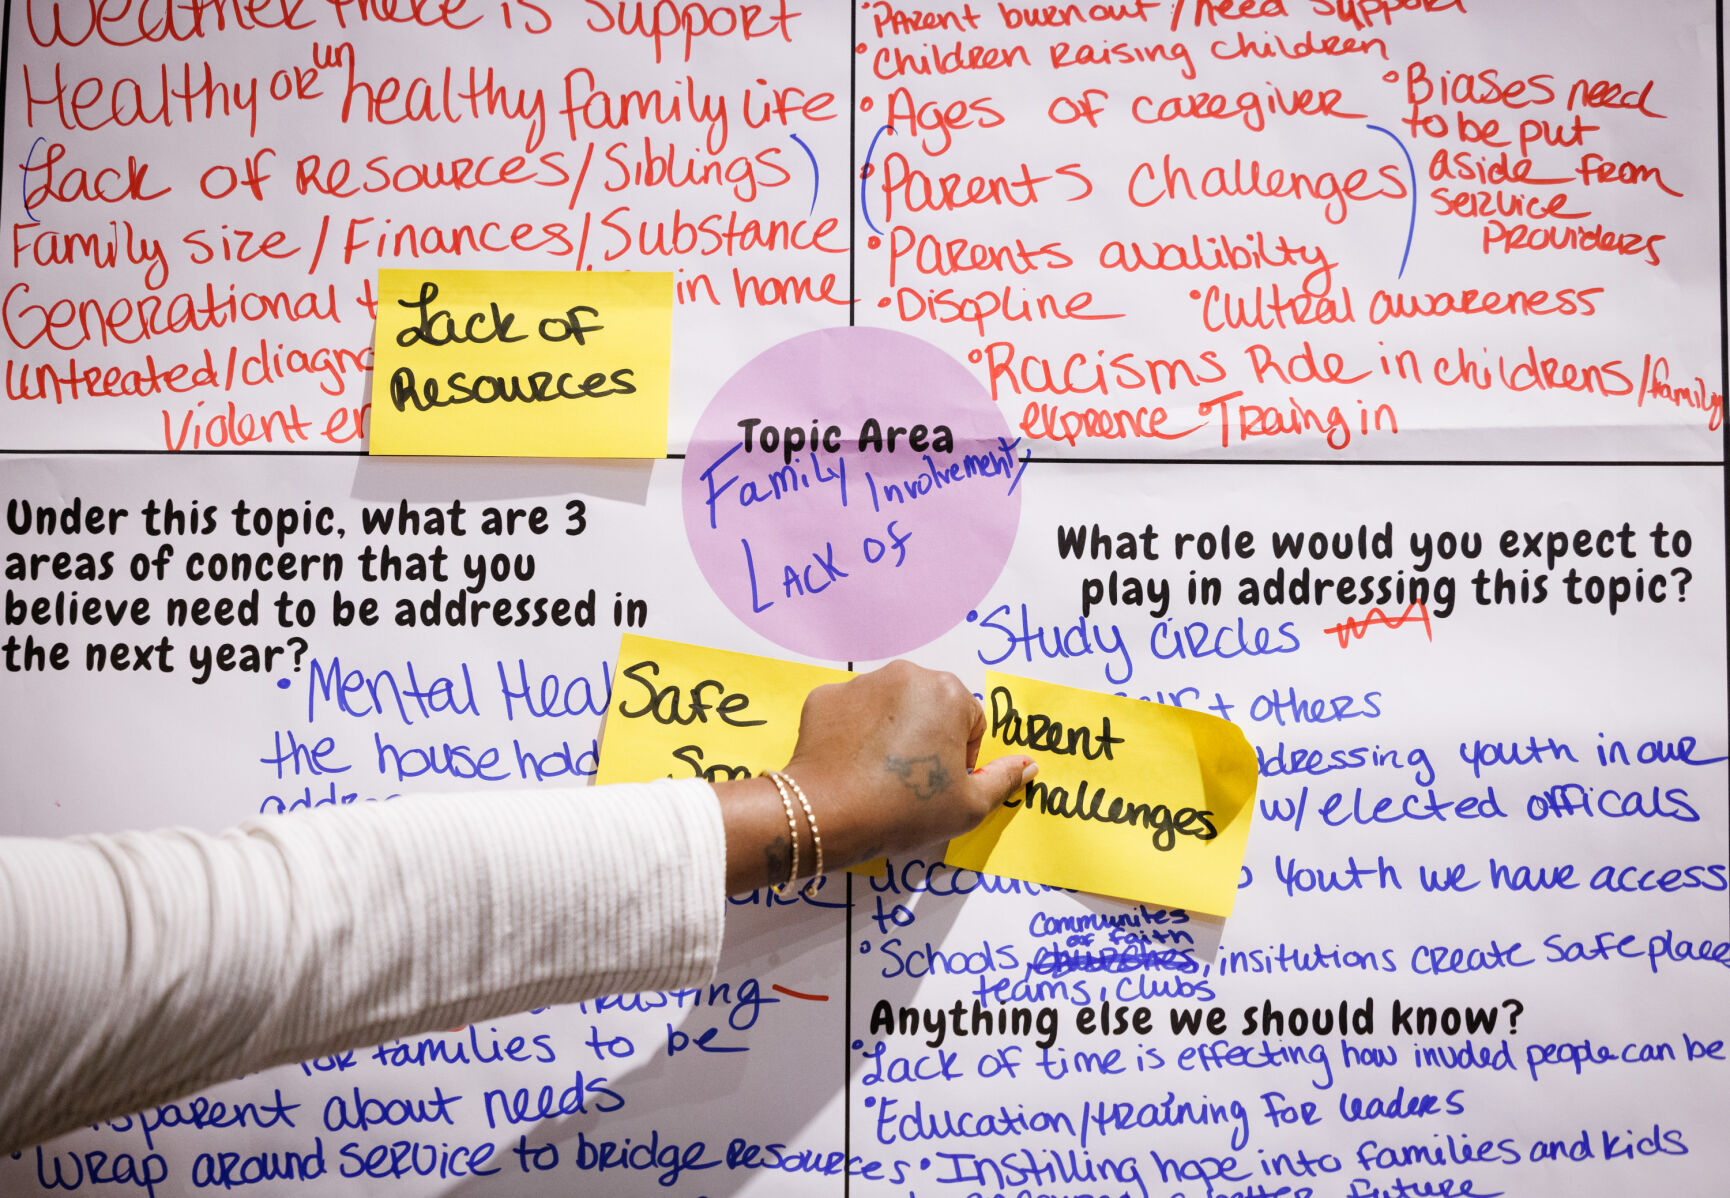 Weather there is support
Healthy or unhealthy family life
(Lack of Resources/Siblings)
Family size/Finances/Substance
in home
Generational
untreated/
Violent
Lack of
Resources
Parent burnout/need support
• Children Raising children
• Ages of caregiver
(Parents challenges)
• Parents avalibilty
• Discpline • Cultral awareness
• Racisms Role in childrens/family
exprence • Traing in
• Biases need
to be put
aside from
service
Providers
Topic Area
Family Involvement,
Lack of
Under this topic, what are 3
areas of concern that you
believe need to be addressed in
the next year?
• Mental
the household
Safe
trusting
for families to be
about needs
• Wrap around service to bridge resources
What role would you expect to
play in addressing this topic?
• Study circles
+ others
Parent
challenges
youth in our
w/elected officals
Youth we have access
to
Communites
of faith
• Schools, churches, insitutions create safe place
teams, clubs
Anything else we should know?
• Lack of time is effecting how invded people can be
• Education/training for leaders
• Instilling hope into families and kids
better future